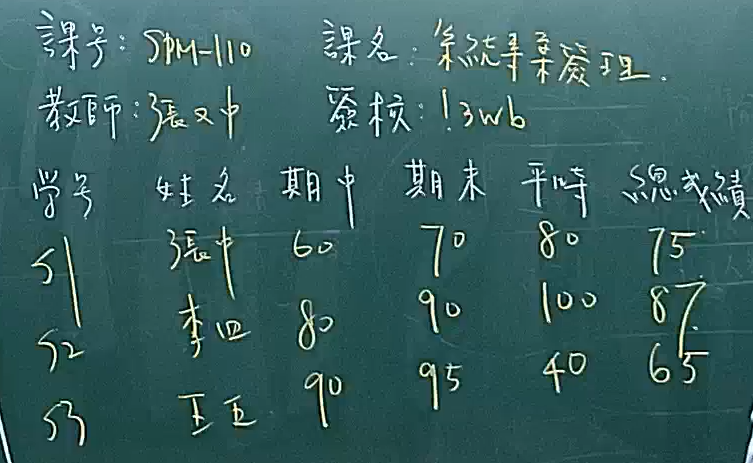 課号: SPM-110 課名: 系統專案管理.
教師: 張又中 簽核: !3wb
学号 姓名 期中 期末 平時 總成績
S1 張中 60 70 80 75
S2 李四 80 90 100 87
S3 王五 90 95 40 65